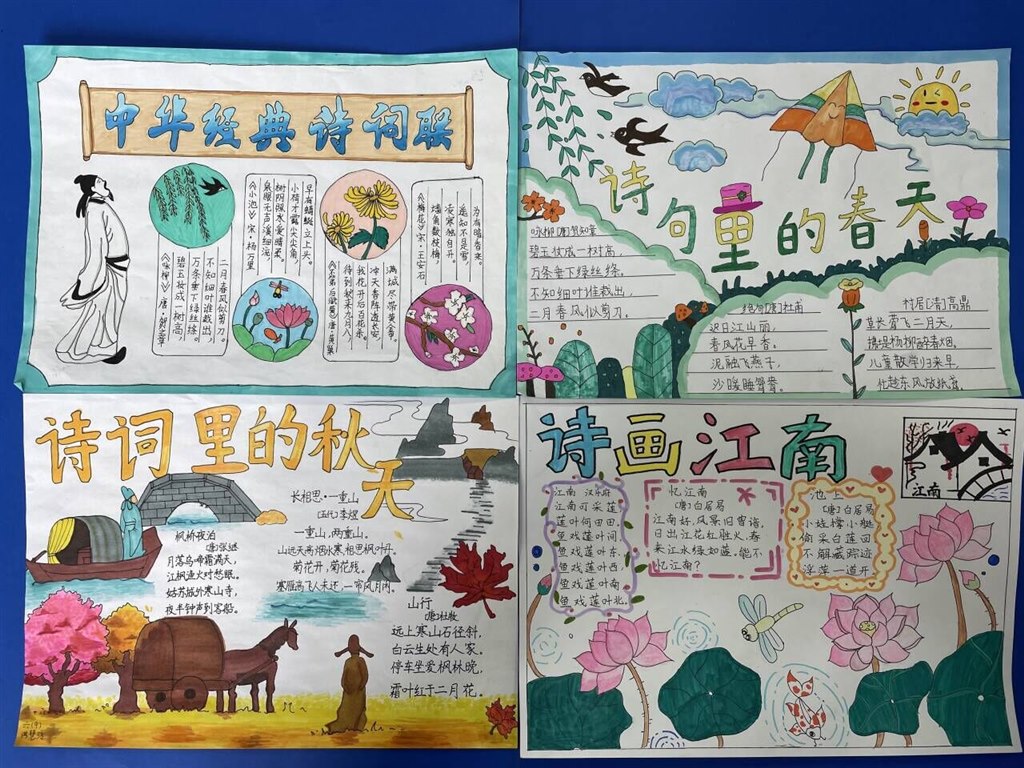 中华经典诗词联
早有蜻蜓立上头。
小荷才露尖尖角,
树阴照水爱晴柔。
泉眼无声惜细流,
《小池》宋·杨万里
二月春风似剪刀。
不知细叶谁裁出,
万条垂下绿丝绦。
碧玉妆成一树高,
《咏柳》唐·贺知章
满城尽带黄金甲。
冲天香阵透长安,
我花开后百花杀。
待到秋来九月八,
《不第后赋菊》唐·黄巢
为有暗香来。
遥知不是雪,
凌寒独自开。
墙角数枝梅,
《梅花》宋·王安石
诗句里的春天
咏柳[唐]贺知章
碧玉妆成一树高,
万条垂下绿丝绦。
不知细叶谁裁出,
二月春风似剪刀。
绝句[唐]杜甫
迟日江山丽,
春风花草香。
泥融飞燕子,
沙暖睡鸳鸯。
村居[清]高鼎
草长莺飞二月天,
拂堤杨柳醉春烟。
儿童散学归来早,
忙趁东风放纸鸢。
诗词里的秋天
长相思·一重山
[五代]李煜
一重山,两重山。
山远天高烟水寒,相思枫叶丹。
菊花开,菊花残。
塞雁高飞人未还,一帘风月闲。
枫桥夜泊
[唐]张继
月落乌啼霜满天,
江枫渔火对愁眠。
姑苏城外寒山寺,
夜半钟声到客船。
山行
[唐]杜牧
远上寒山石径斜,
白云生处有人家。
停车坐爱枫林晚,
霜叶红于二月花。
诗画江南
江南 汉乐府
江南可采莲
莲叶何田田,
鱼戏莲叶间
鱼戏莲叶东,
鱼戏莲叶西,
鱼戏莲叶南
鱼戏莲叶北。
忆江南
(唐)白居易
江南好,风景旧曾谙,
日出江花红胜火,春
来江水绿如蓝,能不
忆江南?
池上
(唐)白居易
小娃撑小艇
偷采白莲回
不解藏踪迹
浮萍一道开
江南